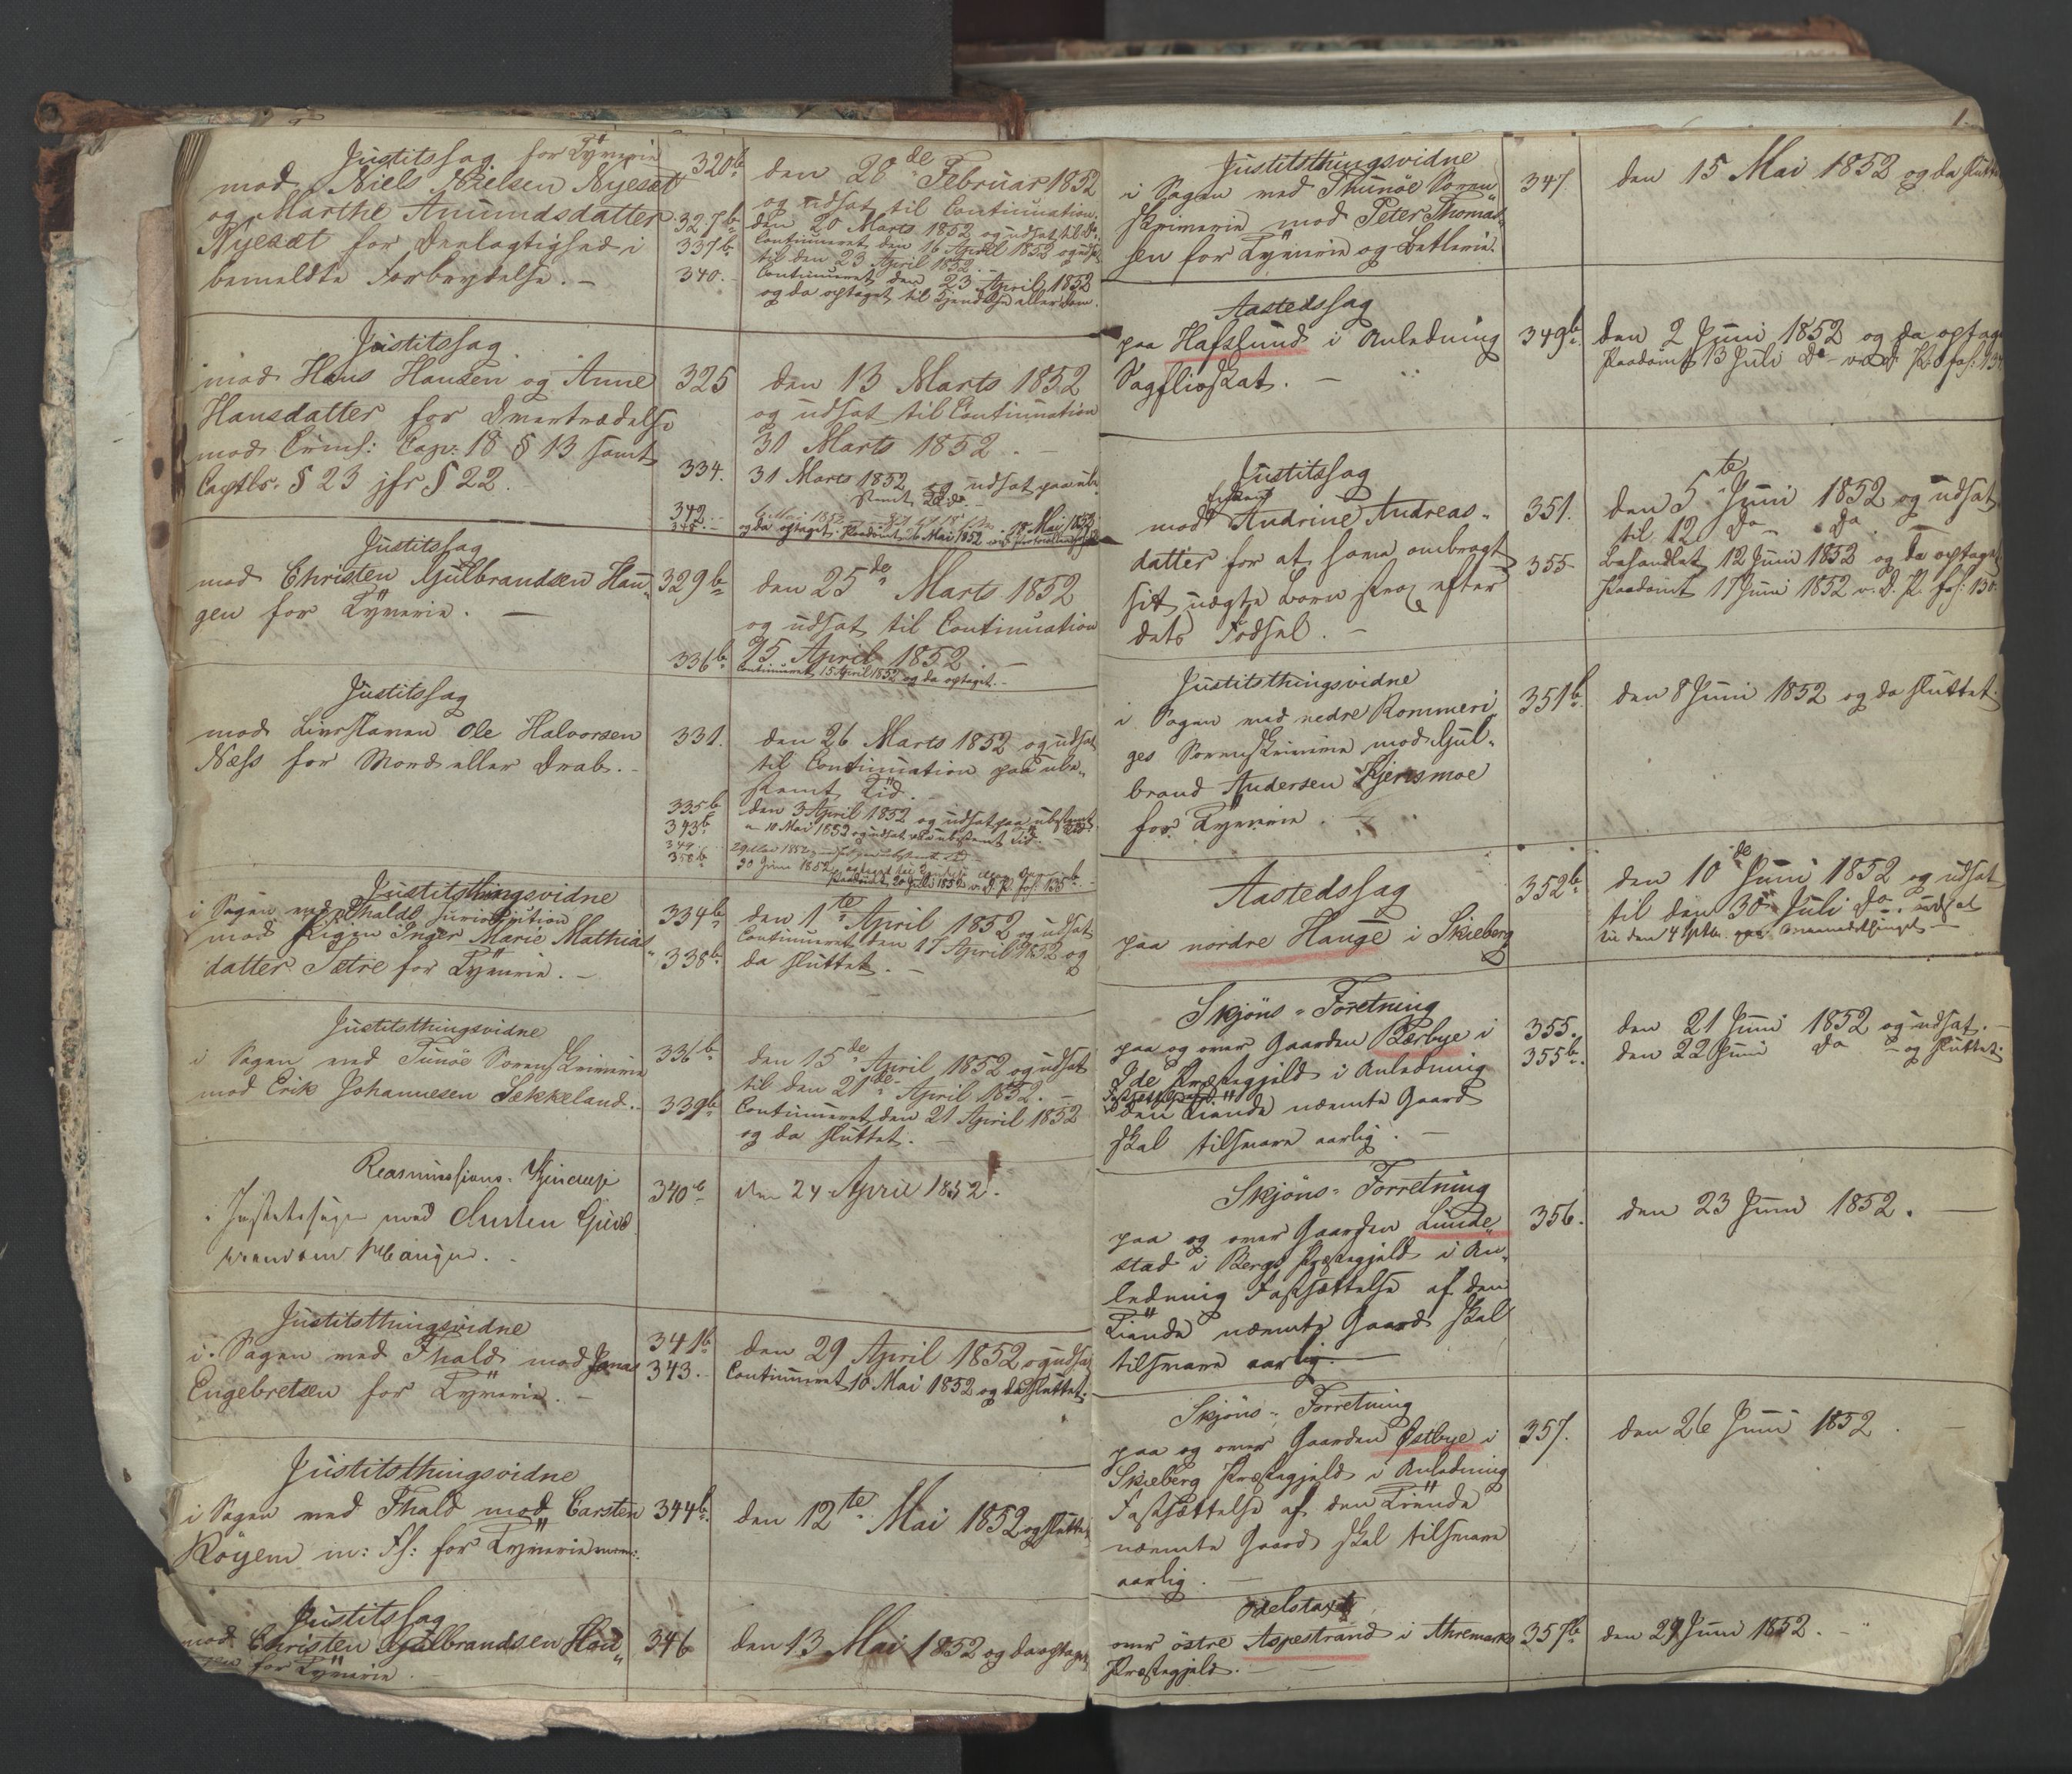 Justitssag for Tyverie
mod Niels Nielsen Nyesæt
og Marthe Amundsdatter
Nyesæt for Deelagtighed i
bemeldte Forbrydelse. –
320b
327b
337b
340.
den 28de Februar 1852
og udsat til Continuation.
den 20 Marts 1852 og udsat til
Continueret den 16 April 1852 og uds
til den 23 April 1852.
Continueret den 23 April 1852
og da optaget til Kjendelse eller Dom.
Justitssag
mod Hans Hansen og Anne
Hansdatter for Overtrædelse
mod Crimf: Cap: 18 § 13 samt
Captls. § 23 jfr § 22.
325
334.
342.
den 13 Marts 1852
og udsat til Continuation
31 Marts 1852. –
31 Marts 1852 og udsat paa ube
stemt Tid.
og da optaget. Paadømt 18 Mai 1852
Justitssag
mod Christen Gulbrandsen Hau„
gen for Tyverie. –
329b
336b
den 25de Marts 1852
og udsat til Continuation
15 April 1852. –
Continueret 15 April 1852 og da optaget. –
Justitssag
mod Livsslaven Ole Halvorsen
Næss for Mord eller Drab. –
331.
335b
343b
349
358b
den 26 Marts 1852 og udsat
til Continuation paa ube„
stemt Tid.
den 3 April 1852 og udsat paa ubestemt Tid
„ 10 Mai 1852 og udsat paa ubestemt Tid.
30 Juni 1852
Paadømt 20 Juli 1852 v. D. P. fol: 135b
Justitsthingsvidne
i Sagen ved Fhalds Jurisdiction
mod Pigen Inger Marie Mathias„
datter Sætre for Tyverie. –
334b
338b
den 1te April 1852 og udsat
Continueret den 17 April 1852 og
da sluttet. –
Justitsthingsvidne
i Sagen ved Tunøe Sorenskriverie
mod Erik Johannesen Sekkeland.
336b
339b
den 15de April 1852 og udsat
til den 21de April 1852. –
Continueret den 21 April 1852
og da sluttet. –
Reasumssions-
i Justitssagen mod Christen Gul
brandsen Haugen. –
340b
den 24 April 1852.
Justitsthingsvidne
i Sagen ved Fhald mod Jonas
Engebretsen for Tyverie. –
341b
343.
den 29 April 1852 og udsat
Continueret 10 Mai 1852 og da sluttet.
Justitsthingsvidne
i Sagen ved Fhald mod Carsten
Röyem m: fl: for Tyverie m. m:
344b
den 12te Mai 1852 og sluttet
Justitssag
mod Christen Gulbrandsen Hau„
gen for Tyverie. –
346
den 13 Mai 1852 og da optaget
1.
Justitsthingsvidne
i Sagen ved Thunöe Soren
skriverie mod Peter Thomas„
sen for Tyverie og Betlerie.
347.
den 15 Mai 1852 og da slutte
Aastedssag
paa Hafslund i Anledning
Sagflioskat. –
349b
den 2 Juni 1852 og da optage
Paadømt 13 Juli Do v. D. P. fol: 134
Justitssag
mod Andrine Andreas„
datter for at have ombragt
sit uægte Barn strax efter
dets Fødsel. –
351.
355
den 5te Juni 1852 og udsat
til 12 Do Do
Behandlet 12 Juni 1852 og da optaget
Paadømt 17 Juni 1852 v. D. P. fol: 130.
Justitsthingsvidne
i Sagen ved nedre Rommeri
ges Sorenskriverie mod Gul„
brand Andersen Kjernsmoe
for Tyverie.
351b
den 8 Juni 1852 og da sluttet
Aastedssag
paa nordre Hauge i Skieberg
352b
den 10de Juni 1852 og udsat
til den 30te Juli Do. udsat
til den 4 Septb.
Skjöns-Forretning
paa og over Gaarden Bærbye i
Ide Præstegjeld i Anledning
Fastsættelse af
den Tiende nævnte Gaard
skal tilsvare aarlig. –
355.
355b
den 21 Juni 1852 og udsat. –
den 22 Juni Do – og sluttet.
Skjöns-Forretning
paa og over Gaarden Lunde„
stad i Bergs Præstegjeld i An„
ledning Fastsættelse af den
Tiende nævnte Gaard skal
tilsvare aarlig.
356.
den 23 Juni 1852. –
Skjöns-Forretning
paa og over Gaarden Østbye i
Skieberg Præstegjeld i Anledning
Fastsættelse af den Tiende
nævnte Gaard skal tilsvare
aarlig. –
357.
den 26 Juni 1852
Odelstaxt
over østre Aspestrand i Aremarks
Præstegjeld. –
357b
den 29 Juni 1852. –